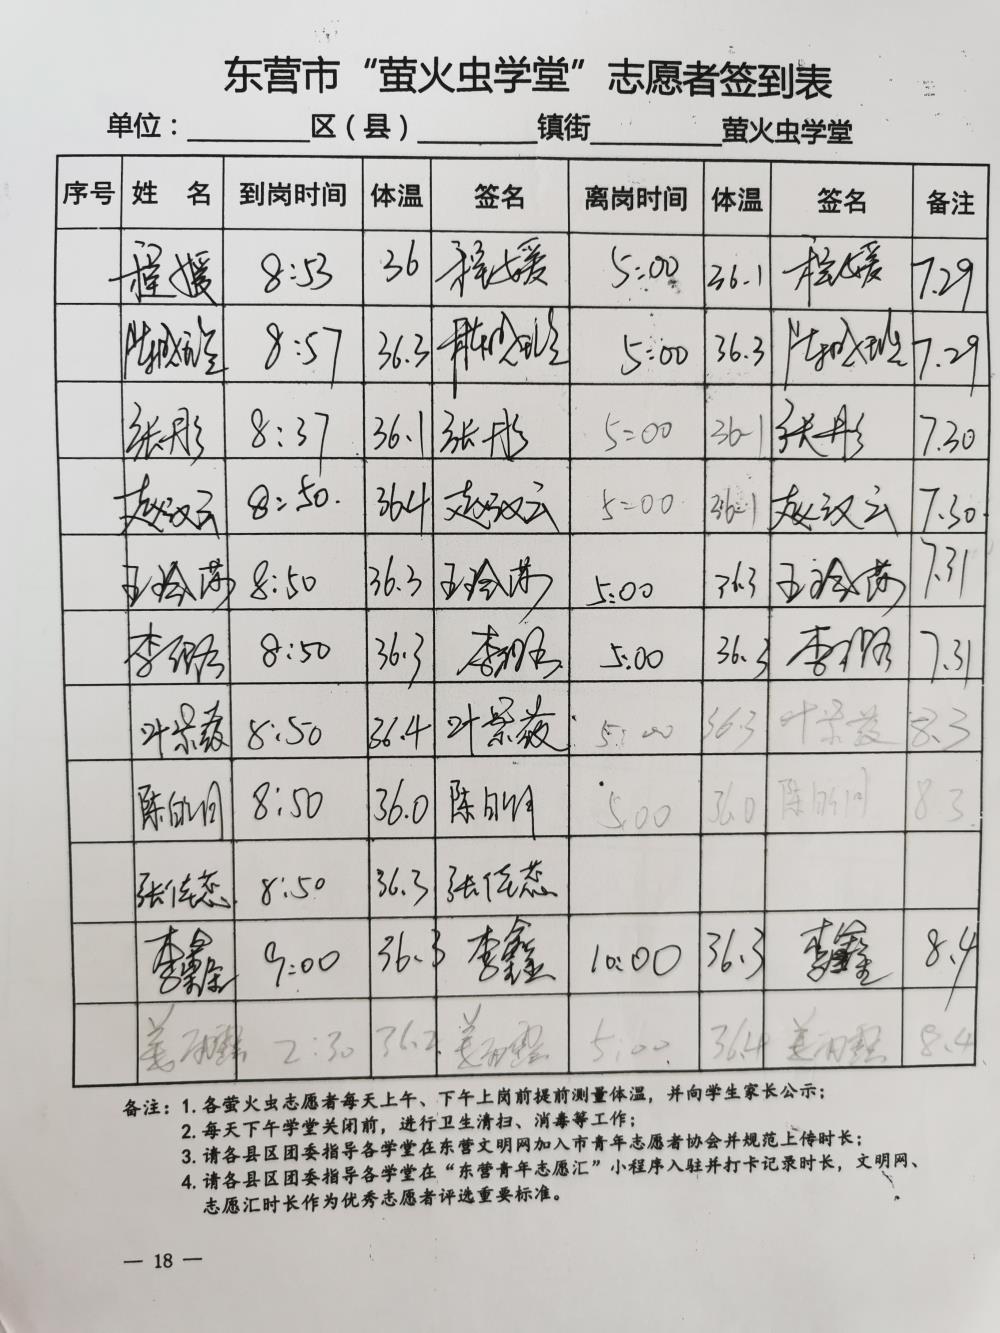 东营市“萤火虫学堂”志愿者签到表
单位：________区（县）________镇街________萤火虫学堂
序号 姓 名 到岗时间 体温 签名 离岗时间 体温 签名 备注
程媛 8:53 36 程媛 5:00 36.1 程媛 7.29
8:57 36.3 5:00 36.3 7.29
张彤 8:37 36.1 张彤 5:00 36.1 张彤 7.30
赵汉云 8:50. 36.4 赵汉云 5:00 36.1 赵汉云 7.30.
8:50 36.3 5:00 36.3 7.31
8:50 36.3 5:00 36.3 7.31
叶景薇 8:50 36.4 叶景薇 5:00 36.3 叶景薇 8.3
8:50 36.0 5:00 36.0 8.3
张佳蕊 8:50 36.3 张佳蕊
李鑫 9:00 36.3 李鑫 10:00 36.3 李鑫 8.4
2:30 36.2 5:00 36.4 8.4
备注：1. 各萤火虫志愿者每天上午、下午上岗前提前测量体温，并向学生家长公示；
2. 每天下午学堂关闭前，进行卫生清扫、消毒等工作；
3. 请各县区团委指导各学堂在东营文明网加入市青年志愿者协会并规范上传时长；
4. 请各县区团委指导各学堂在“东营青年志愿汇”小程序入驻并打卡记录时长，文明网、
志愿汇时长作为优秀志愿者评选重要标准。
— 18 —